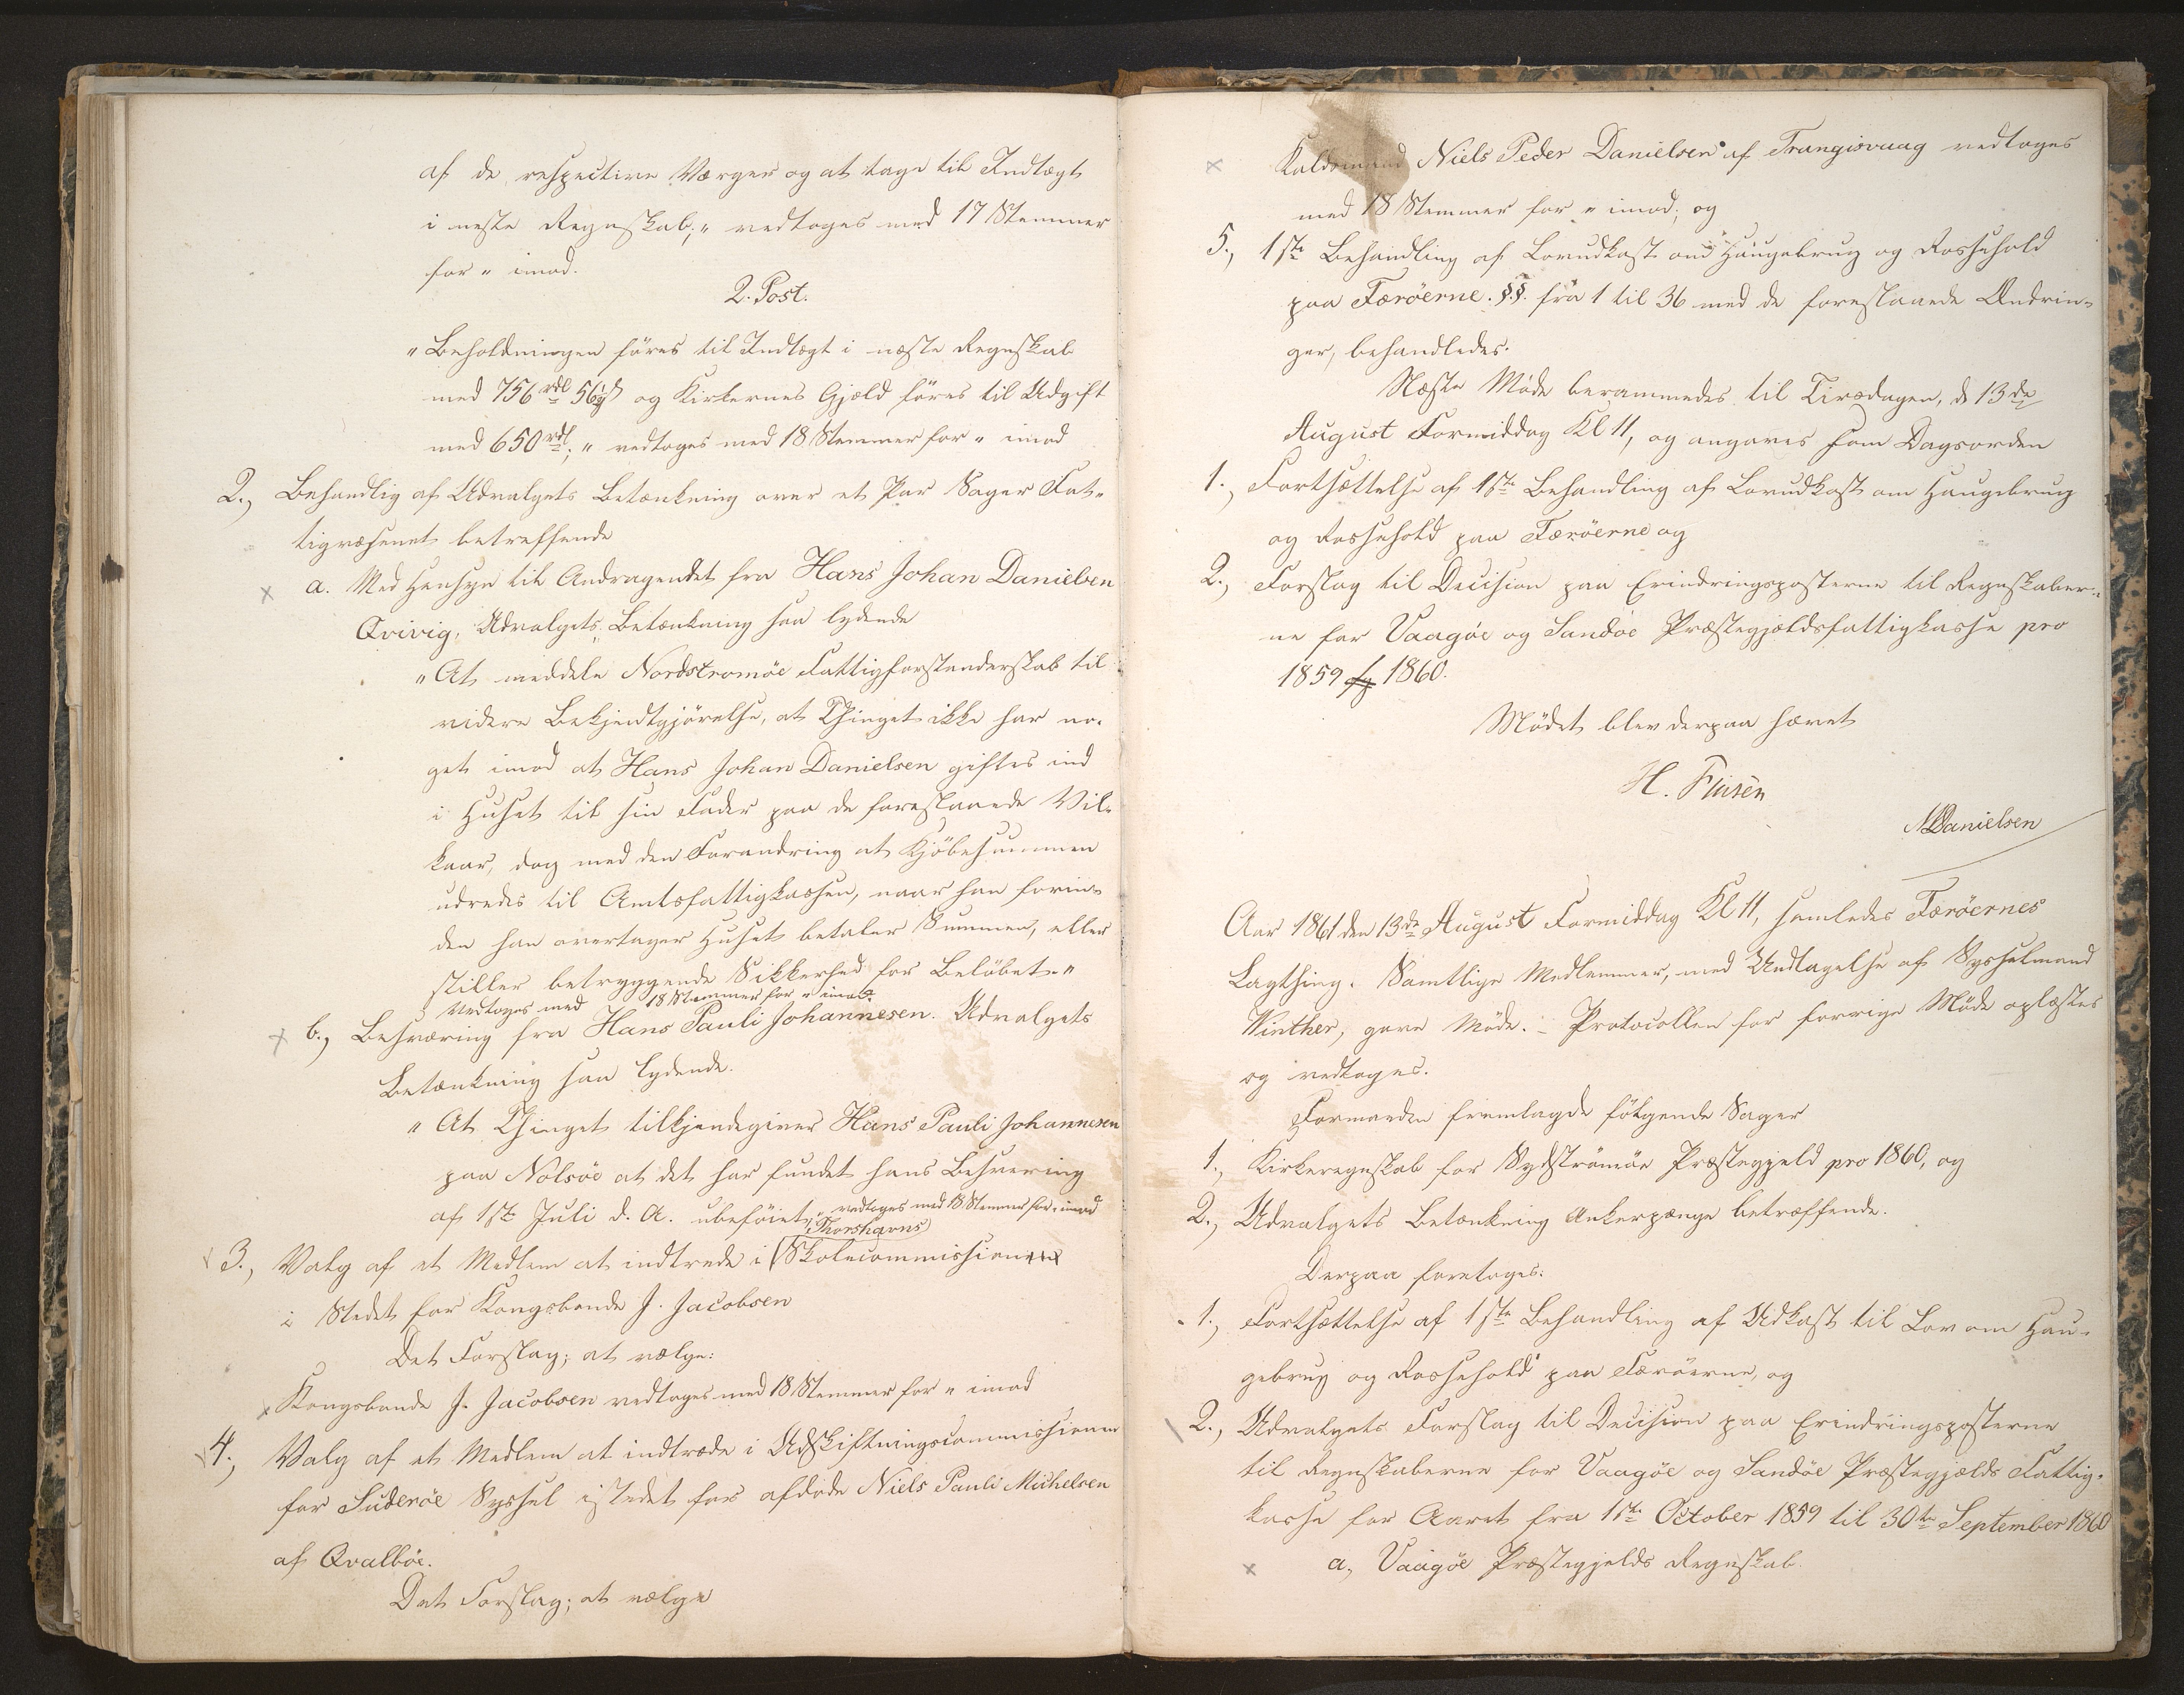 af de respective Værger og at tage til Indtægt
i neste Regnskab;" vedtoges med 17 Stemmer
for " imod.
2. Post.
"Beholdningen föres til Indtægt i næste Regnskab
med 756 rdl 56½ ß og Kirkernes Gjæld föres til Udgift
med 650 rdl;" vedtoges med 18 Stemmer for " imod
2., Behandlig af Udvalgets Betænkning over et Par Sager Fat-
tigvæsenet betreffende
a. Med Hensyn til Andragendet fra Hans Johan Danielsen
Qvivig, Udvalgets Betænkning saa lydende
"At meddele Nordstromöe Fattigforstanderskab til
videre Bekjendtgjörelse, at Thinget ikke har no-
get imod at Hans Johan Danielsen giftes ind
i Huset til sin Fader paa de foreslaaede Vil-
kaar, dog med den Forandring at Kjöbesummen
udredes til Amtsfattigkassen, naar han forin-
den han overtager Huset betaler Summen, eller
stiller betryggende Sikkerhed for Belöbet."
Vedtoges med 18 Stemmer for " imod.
b., Besværing fra Hans Pauli Johannesen. Udvalgets
Betænkning saa lydende.
"At Thinget tilkjendegiver Hans Pauli Johannesen
paa Nolsöe at det har fundet hans Besvering
af 1ste Juli d. A. uboföiet," vedtoges med 18 Stemmer for " imod
3., Valg af et Medlem at indtrede i Thorshavns Skolecommissionen
i Stedet for Kongsbonde J. Jacobsen
Det Forslag; at vælge:
Kongsbonde J. Jacobsen vedtoges med 18 Stemmer for " imod
4., Valg af et Medlem at indtræde i Udskiftningscommissionen
for Suderöe Syssel istedet for afdöde Niels Pauli Michelsen
af Qvalböe.
Det Forslag; at vælge
Niels Peder Danielsen af Trangisvaag vedtoges
med 18 Stemmer for " imod; og
5., 1ste Behandling af Lovudkast om Haugebrug og Fossehold
paa Færöerne. §.§. fra 1 til 36 med de foreslaaede Ændrin-
ger, behandledes.
Næste Möde berammedes til Tirsdagen, d 13de
August Formiddag Kl 11, og angaves som Dagsorden
1., Fortsættelse af 1ste Behandling af Lovudkast om Haugebrug
og Fossehold paa Færöerne og
2., Forslag til Decision paa Erindringsposterne til Regnskaber-
ne for Vaagöe og Sandöe Præstegjældsfattigkasse pro
1859 1860.
Mödet blev derpaa hævet
H. Finsen
NDanielsen
Aar 1861 den 13de August Formiddag Kl 11, samledes Færöernes
Lagthing. Samtlige Medlemmer, med Undtagelse af Sysselmand
Winther, gave Möde. – Protocollen for forrige Möde oplæstes
og vedtoges.
Formanden fremlagde fölgende Sager
1., Kirkeregnskab for Sydströmöe Præstegjeld pro 1860, og
2., Udvalgets Betænkning Ankerpænge betræffende.
Derpaa foretoges:
1., Fortsættelse af 1ste Behandling af Udkast til Lov om Hau-
gebrug og Fossehold paa Færöerne, og
2., Udvalgets Forslag til Decision paa Erindringsposterne
til Regnskaberne for Vaagöe og Sandöe Præstegjælds Fattig-
kasse for Aaret fra 1ste October 1859 til 30te September 1860
a, Vaagöe Præstegjelds Regnskab.